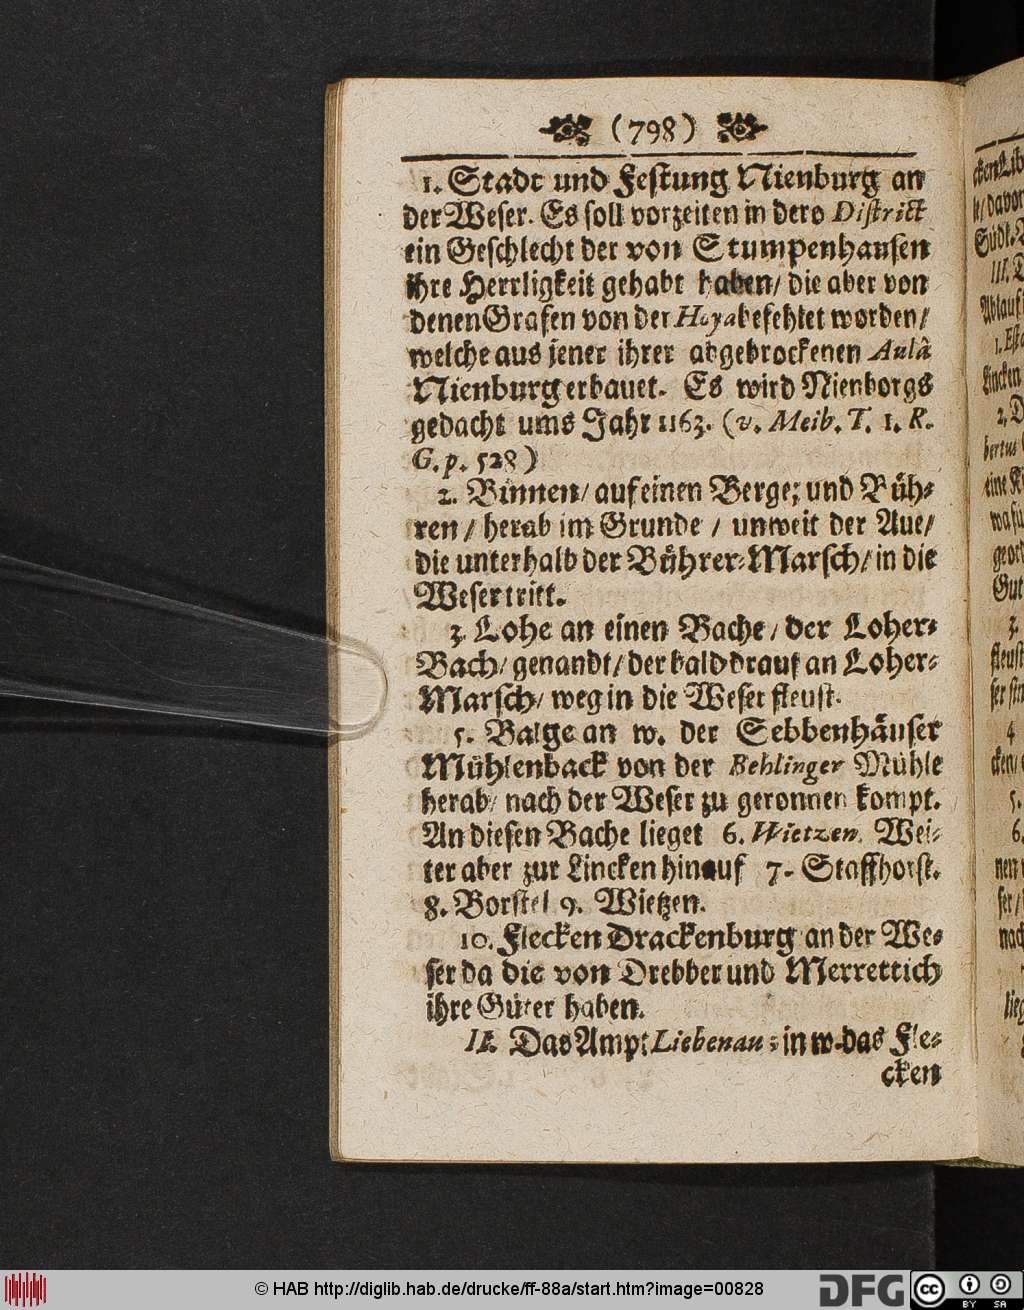 (798)
1. Stadt und Festung Nienburg an
der Weser. Es soll vorzeiten in dero District
ein Geschlecht der von Stumpenhausen
ihre Herrligkeit gehabt haben/ die aber von
denen Grafen von der Hoya befehlet worden/
welche aus jener ihrer abgebrockenen Aulâ
Nienburg erbauet. Es wird Nienborgs
gedacht ums Jahr 1163. (v. Meib. T. 1. R.
G. p. 528)
2. Binnen/ auf einen Berge; und Büh-
ren / herab im Grunde / unweit der Aue/
die unterhalb der Bührer-Marsch/ in die
Weser tritt.
3. Lohe an einen Bache / der Loher-
Bach/ genandt/ der bald drauf an Loher-
Marsch/ weg in die Weser fleust.
5. Balge an w. der Sebbenhäuser
Mühlenback von der Behlinger Mühle
herab/ nach der Weser zu geronnen kompt.
An diesen Bache lieget 6. Wietzen. Wei-
ter aber zur Lincken hinauf 7. Staffhorst.
8. Borstel 9. Wietzen.
10. Flecken Drackenburg an der We-
ser da die von Drebber und Merrettich
ihre Güter haben.
II. Das Ampt Liebenau; in w. das Fle-
cken
© HAB http://diglib.hab.de/drucke/ff-88a/start.htm?image=00828
DFG
cc
BY SA